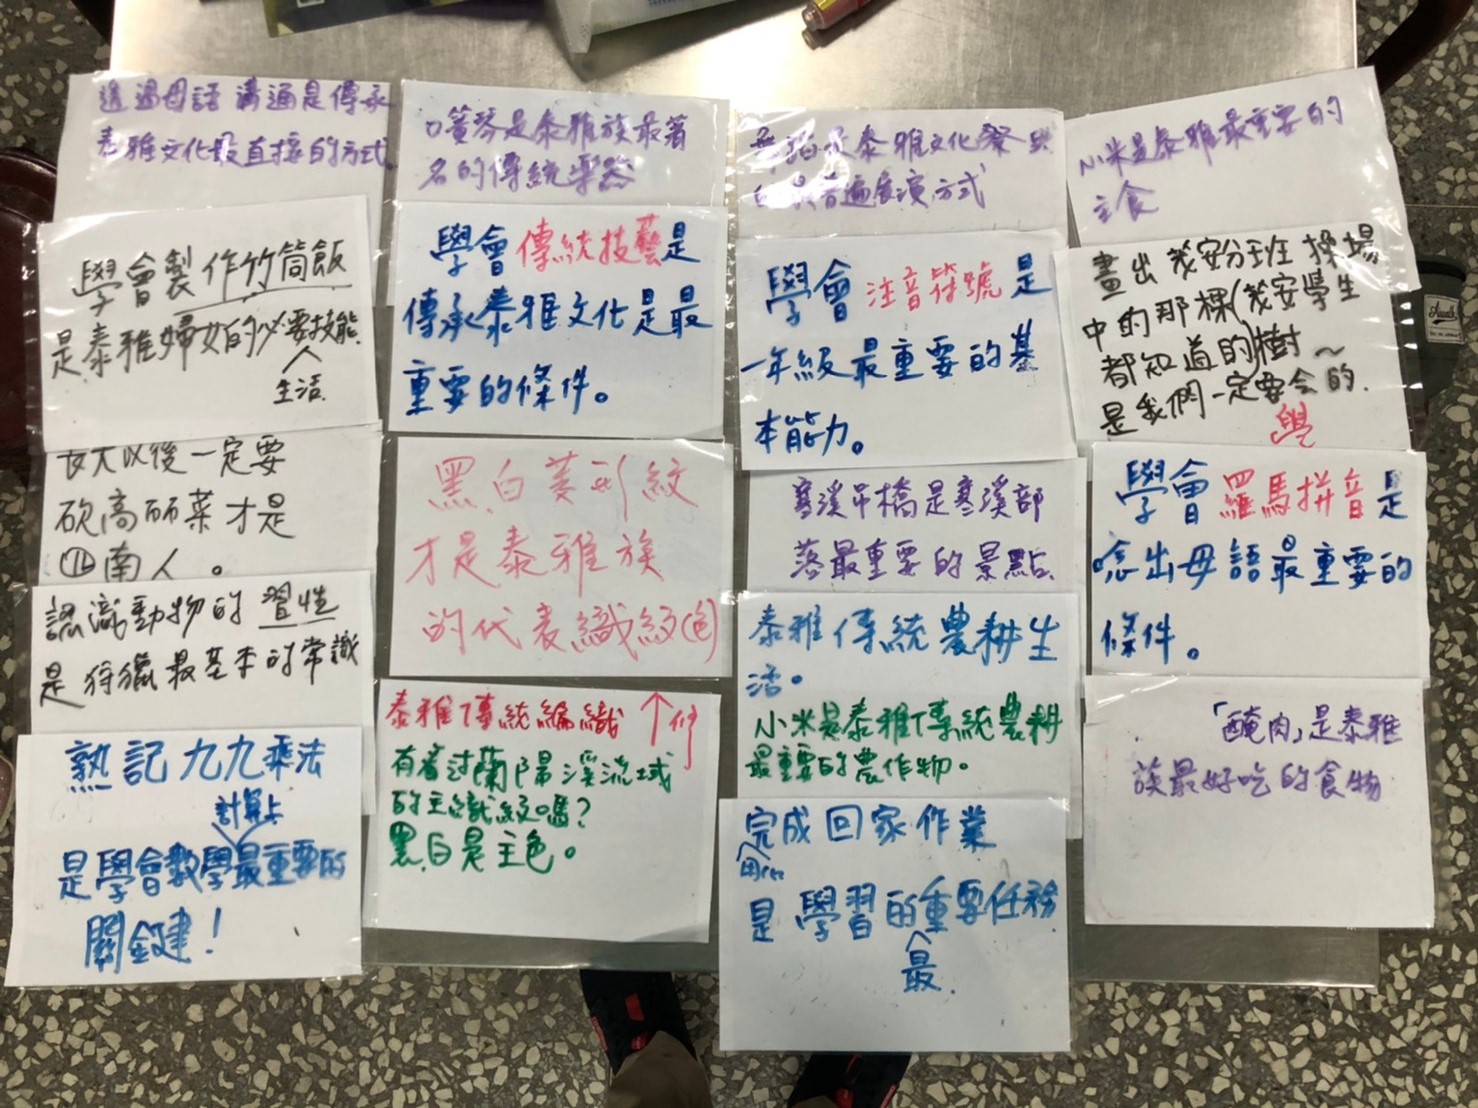 透過母語溝通是傳承
泰雅文化最直接的方式
學會製作竹筒飯
是泰雅婦女的必要技能
生活
長大以後一定要
砍高麗菜才是
南人。
認識動物的習性
是狩獵最基本的常識
熟記九九乘法
計算上
是學會數學最重要的
關鍵！
口簧琴是泰雅族最著
名的傳統樂器
學會傳統技藝是
傳承泰雅文化是最
重要的條件。
黑白菱形紋
才是泰雅族
的代表織紋(色)
泰雅傳統編織
有看過蘭陽溪流域
的主織紋嗎？
黑白是主色。
是泰雅文化祭典
的最普遍展演方式
學會注音符號是
一年級最重要的基
本能力。
寒溪吊橋是寒溪部
落最重要的景點.
泰雅傳統農耕生
活。
小米是泰雅傳統農耕
最重要的農作物。
完成回家作業
是學習的重要任務.
最.
小米是泰雅最重要的
主食
畫出茂安分班操場
中的那棵(茂安學生
都知道的)樹～
是我們一定要會的.
學
學會羅馬拼音是
唸出母語最重要的
條件。
「醃肉」是泰雅
族最好吃的食物